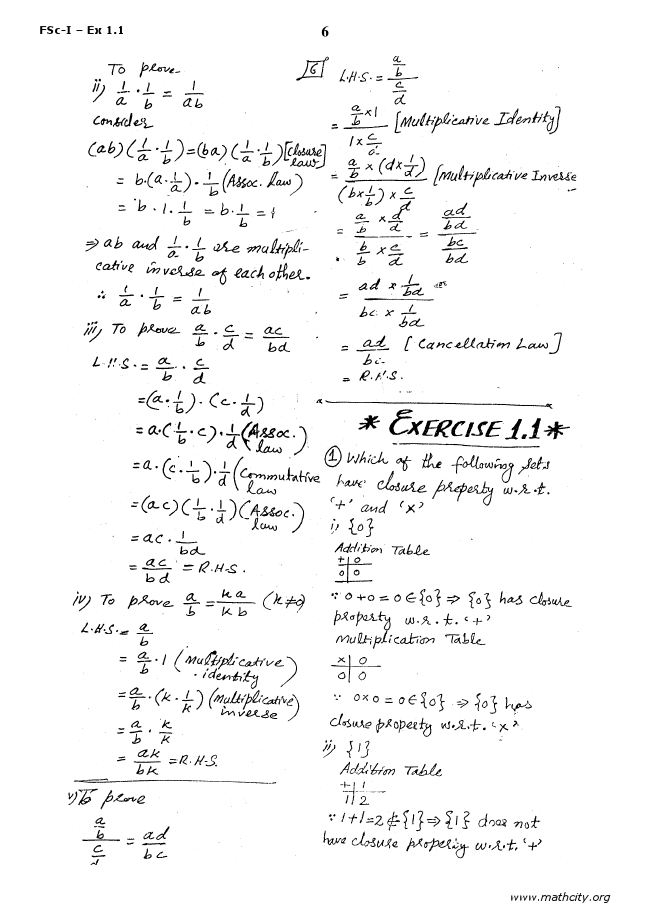 FSc-I – Ex 1.1
6
To prove
ii) 1/a · 1/b = 1/ab
consider
(ab)(1/a · 1/b) = (ba)(1/a · 1/b) [closure law]
= b·(a·1/a)·1/b (Assoc. Law)
= b·1·1/b = b·1/b = 1
⇒ ab and 1/a · 1/b are multipli-
cative inverse of each other.
∴ 1/a · 1/b = 1/ab
iii) To prove a/b · c/d = ac/bd
L.H.S. = a/b · c/d
= (a·1/b)·(c·1/d)
= a·(1/b·c)·1/d (Assoc. law)
= a·(c·1/b)·1/d (Commutative law)
= (ac)(1/b·1/d) (Assoc. law)
= ac·1/bd
= ac/bd = R.H.S.
iv) To prove a/b = ka/kb (k≠0)
L.H.S. = a/b
= a/b · 1 (multiplicative identity)
= a/b · (k·1/k) (multiplicative inverse)
= a/b · k/k
= ak/bk = R.H.S.
v) To prove
(a/b)/(c/d) = ad/bc
6 L.H.S. = (a/b)/(c/d)
= (a/b × 1)/(1 × c/d) [Multiplicative Identity]
= (a/b × (d×1/d))/((b×1/b) × c/d) [Multiplicative Inverse
= (a/b × d/d)/(b/b × c/d) = (ad/bd)/(bc/bd)
= (ad × 1/bd)/(bc × 1/bd)
= ad/bc [Cancellation Law]
= R.H.S.
* EXERCISE 1.1 *
① Which of the following sets
have closure property w.r.t.
'+' and '×'
i) {0}
Addition Table
+ | 0
0 | 0
∵ 0+0=0∈{0} ⇒ {0} has closure
property w.r.t. '+'
Multiplication Table
× | 0
0 | 0
∵ 0×0=0∈{0} ⇒ {0} has
closure property w.r.t. '×'
ii) {1}
Addition Table
+ | 1
1 | 2
∵ 1+1=2∉{1} ⇒ {1} does not
have closure property w.r.t. '+'
www.mathcity.org